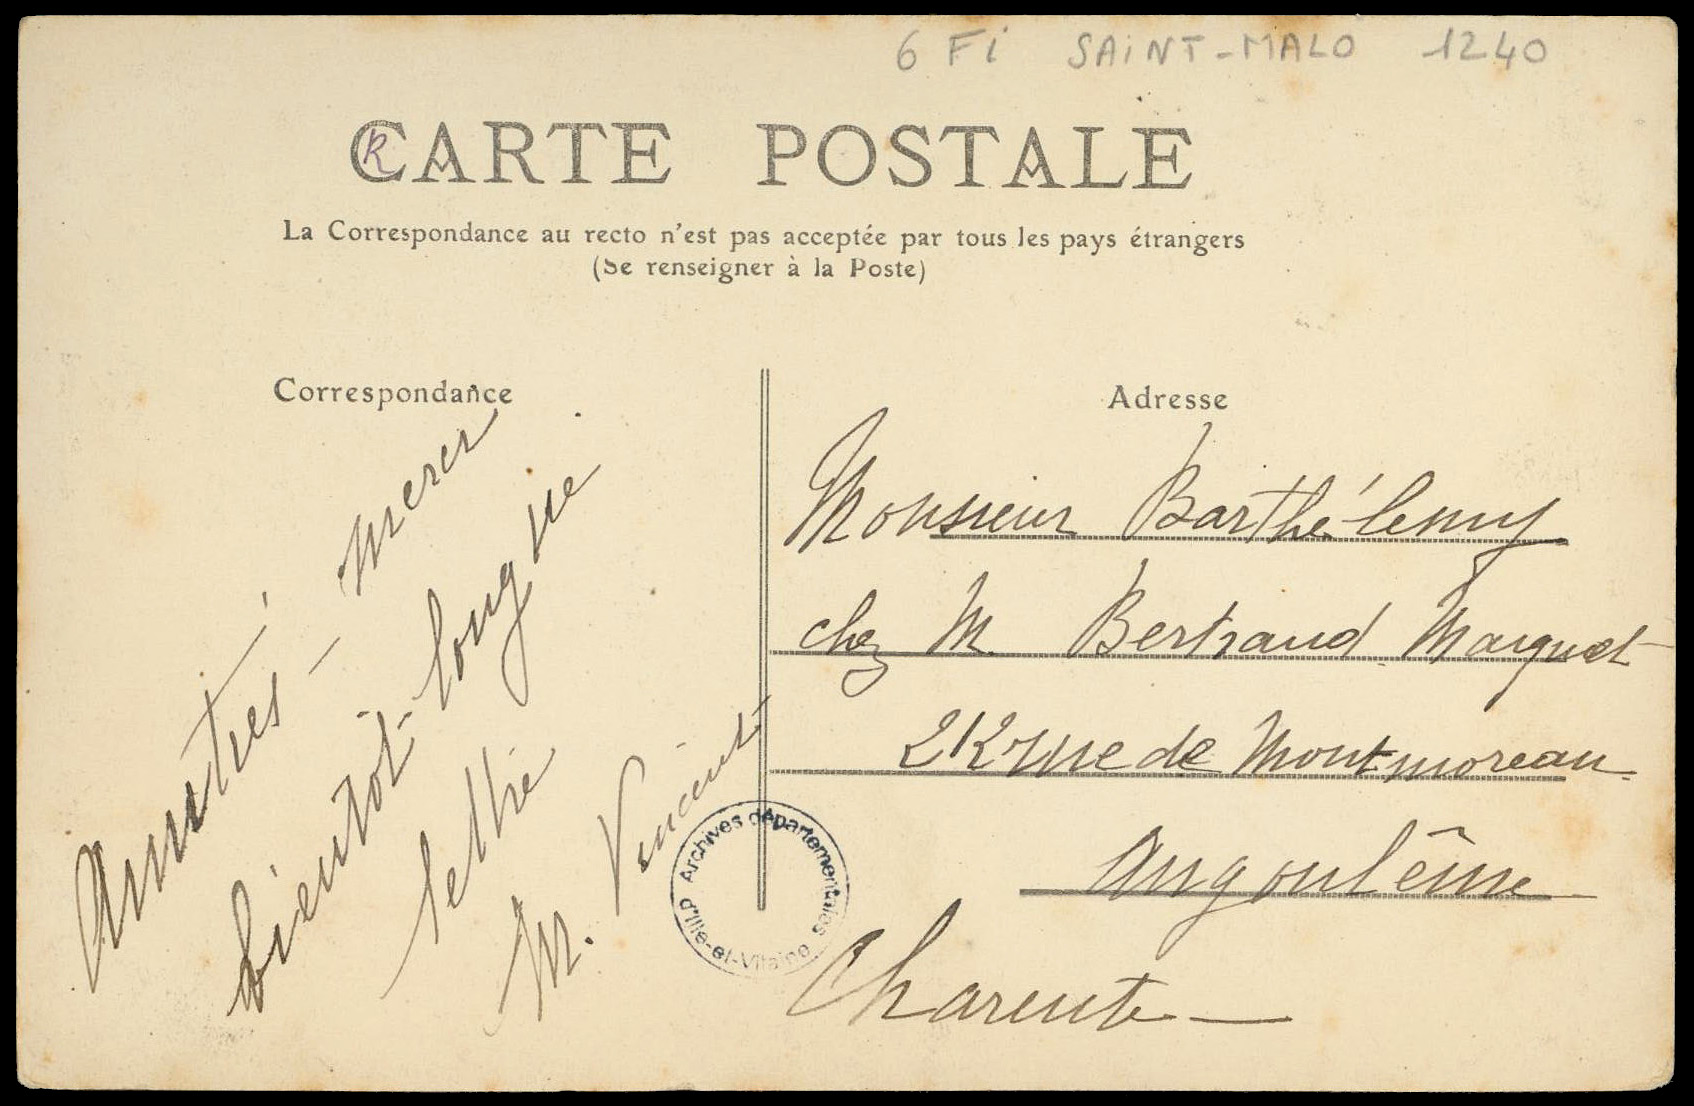 6 Fi SAiNT-MALO 1240
CARTE POSTALE
R
La Correspondance au recto n'est pas acceptée par tous les pays étrangers
(Se renseigner à la Poste)
Correspondance
Amitiés - merci
bientôt longue
lettre
M. Vincent
Adresse
Monsieur Barthélemy
chez M. Bertrand Marquet
212 rue de Montmoreau
Angoulême
Charente
Archives départementales
d'Ille-et-Vilaine